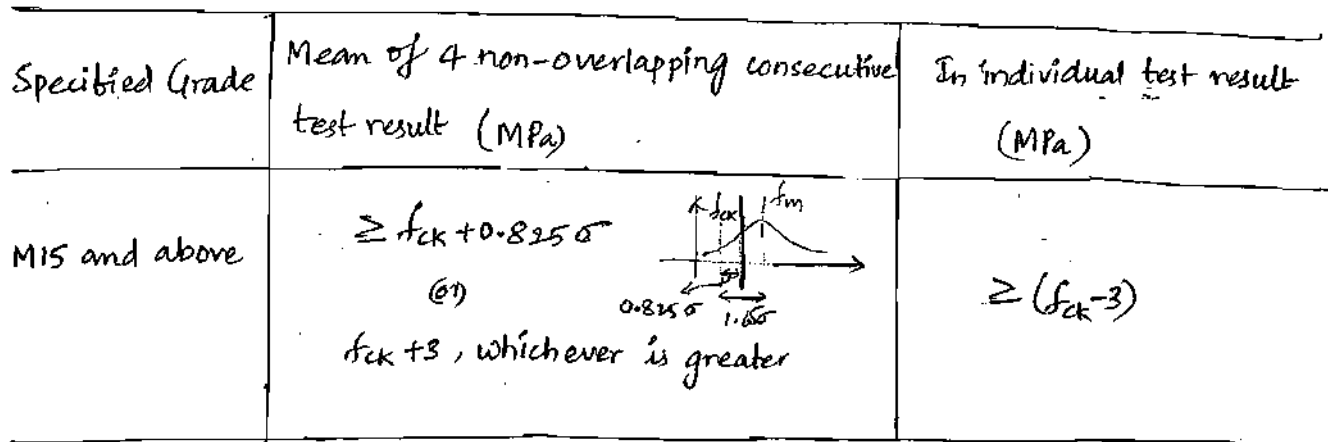 Specified Grade
Mean of 4 non-overlapping consecutive
test result (MPa)
In individual test result
(MPa)
M15 and above
≥ fck + 0.825σ
(or)
fck + 3, whichever is greater
fck
fm
0.825σ
1.65σ
≥ (fck - 3)